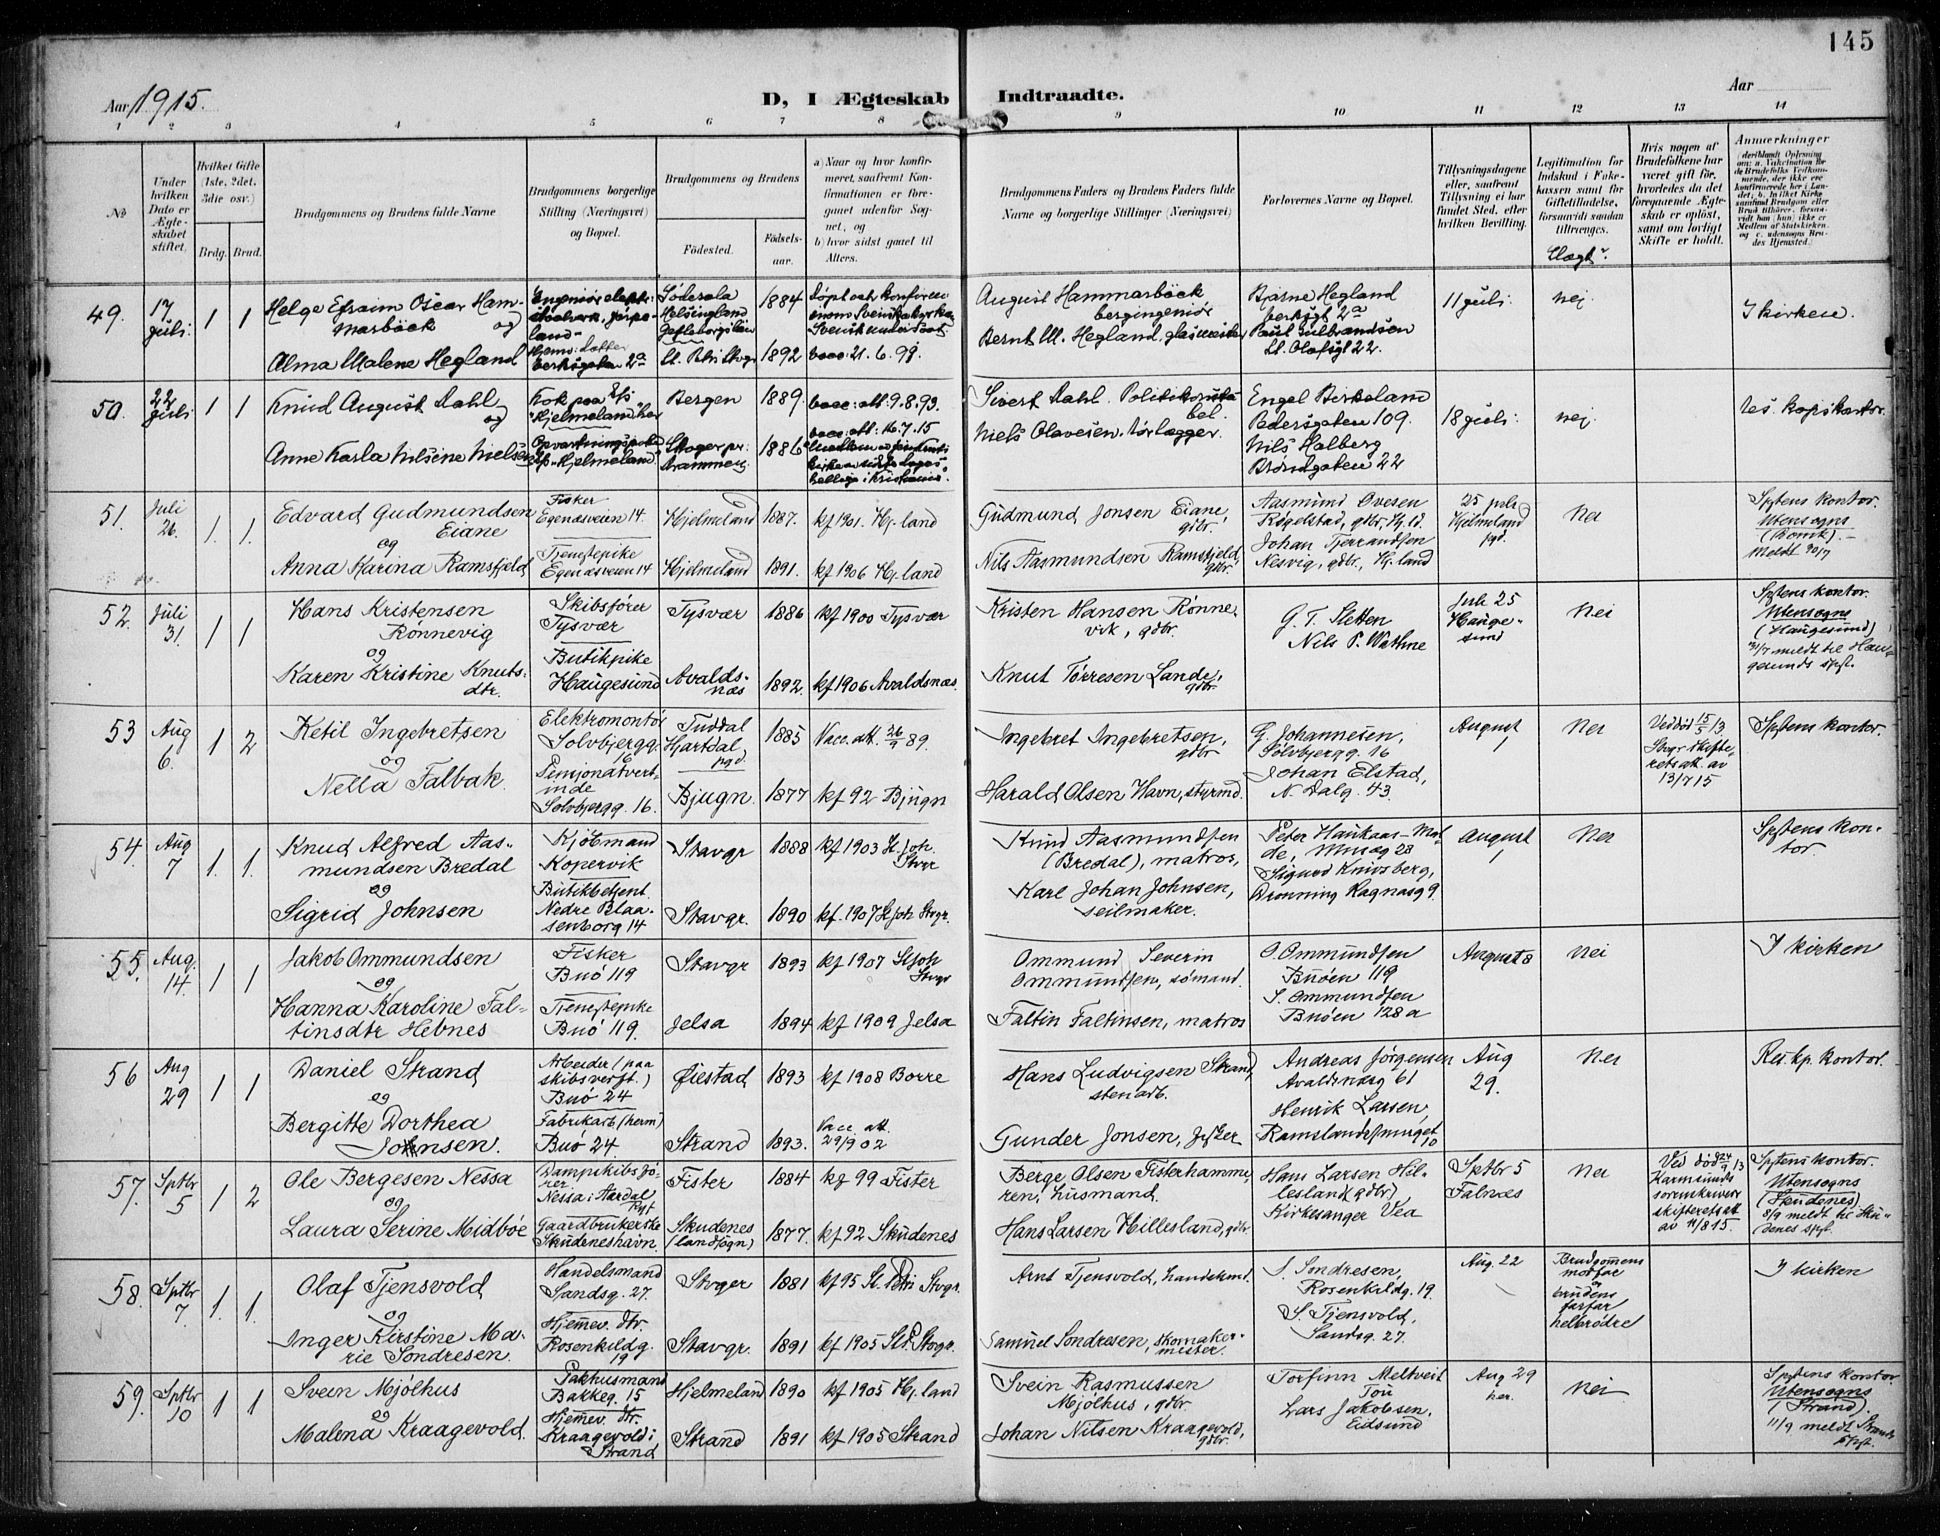 145
Aar 1915.
D, I Ægteskab Indtraadte.
Aar
1 2 3 4 5 6 7 8 9 10 11 12 13 14
No
Under hvilken Dato er Ægteskabet stiftet.
Hvilket Gifte (1ste, 2det, 3die osv.)
Brdg. Brud.
Brudgommens og Brudens fulde Navne
Brudgommens borgerlige Stilling (Næringsvei) og Bopæl.
Brudgommens og Brudens
Fødested.
Fødselsaar.
a) Naar og hvor konfirmeret, saafremt Konfirmationen er foregaaet udenfor Sognet, og
b) hvor sidst gaaet til Alters.
Brudgommens Faders og Brudens Faders fulde Navne og borgerlige Stillinger (Næringsvei)
Forlovernes Navne og Bopæl.
Tillysningsdagene eller, saafremt Tillysning ei har fundet Sted, efter hvilken Bevilling.
Legitimation for Indskud i Enkekassen samt for Giftetilladelse, forsaavidt saadan tiltrænges.
Slægt?
Hvis nogen af Brudefolkene har været gift før, hvorledes da det foregaaende Ægteskab er opløst, samt om lovligt Skifte er holdt.
Anmærkninger
49. 17 juli 1 1
Helge Efraim Oscar Hammarbäck
og
Alma Malene Hegland
Söderala Helsingland Gefleborgs län 1884
St. Petri Stvgr 1892
vacc. 21.6.99.
August Hammarbäck bergingeniör
Bernt M. Hegland, glasmester
Bjarne Hegland
Paul Gulbrandsen
St. Olafsgt 22.
11 juli
nej
I kirken.
50. 22 juli 1 1
Knud August Dahl
og
Anne Karla Nilsine Nielsen
Kok paa D/s "Hjelmeland" her
D/s "Hjelmeland"
Bergen 1889
Skoger pr. Drammen 1886
vacc. att. 9.8.93.
vacc. att. 16.7.15
Sivert Dahl. Politikonstabel.
Niels Olavesen. Rørlægger.
Engel Birkeland
Pedersgaten 109.
Nils Halberg
Brøndgaten 22
18 juli
nej
res. kap's kontor.
51. Juli 26. 1. 1.
Edvard Gudmundsen Eiane
og
Anna Karina Ramsfjeld
Fisker
Egenæsveien 14.
Tjenestepike
Egenæsveien 14
Hjelmeland 1887. kf 1901. Hj.land
Hjelmeland 1891. kf 1906 Hj.land
Gudmund Jonsen Eiane, gdbr.
Nils Aasmundsen Ramsfjeld, gdbr.
Aasmund Ovesen
Rigelstad, gdbr. Hj.ld.
Johan Tjerrandsen
Nesvig, gdbr., Hj.land
25 juli Hjelmeland pgd.
Nei
Sptens kontor.
Utensogns
Meldt 30/7
52. Juli 31. 1 1
Hans Kristensen Rønnevig
og
Karen Kristine Knutsdtr.
Skibsfører
Tysvær
Butikpike
Haugesund
Tysvær 1886 kf 1900 Tysvær
Avaldsnæs 1892. kf 1906 Avaldsnæs.
Kristen Hansen Rønnevik, gdbr.
Knut Tørresen Lande, gdbr.
G. T. Sletten
Nils P. Wathne
Juli 25 Haugesund
Nei
Sptens kontor.
Utensogns
(Haugesund)
31/7 meldt til Haugesunds spst.
53 Aug 6. 1 2
Ketil Ingebretsen
og
Nella Falbak.
Elektromontør
Solvbjergg. 16
Pensjonatvertinde
Solvbjergg. 16.
Tuddal Hjartdal pgd. 1885 Vacc. att. 26/9 89.
Bjugn. 1877 kf 92 Bjugn
Ingebret Ingebretsen, gdbr
Harald Olsen Havn, styrmd.
G. Johannesen,
Sølvbjergg. 16
Johan Elstad,
N. Dalg. 43.
August 1
Nei
Ved død 15/5 13. Stvgr skifterets att. av 13/7 15
Sptens kontor.
54. Aug 7 1. 1.
Knud Alfred Aasmundsen Bredal
og
Sigrid Johnsen
Kjøbmand
Kopervik
Butikbetjent.
Nedre Blaasenborg 14
Stavgr 1888 kf 1903 St Joh. Stvgr
Stavgr. 1890 kf. 1907 St Joh Stvgr.
Knud Aasmundsen (Bredal), matros,
Karl Johan Johnsen, seilmaker.
Sigurd Knivsberg,
Dronning Ragnasg 9.
August 1
Nei
Sptens kontor.
55. Aug. 14. 1 1
Jakob Ommundsen
og
Hanna Karoline Faltinsdtr Hebnes
Fisker
Buø 119
Tjenestepike
Buø 119.
Stavgr 1893 kf 1907 St Joh Stvgr
Jelsa 1894 kf 1909 Jelsa
Ommund Severin Ommundsen, sømand.
Faltin Faltinsen, matros
O. Ommundsen
Buøen 119
S. Ommundsen
Buøen 128 a
August 8
Nei
I kirken
56 Aug 29 1 1
Daniel Strand
og
Bergitte Dorthea Johnsen.
Arbeider (paa skibsverft.)
Buø 24
Fabrikarb (herm)
Buø 24.
Øiestad 1893 kf 1908 Borre
Strand 1893. Vacc. att. 29/9 02
Hans Ludvigsen Strand, stenarb.
Gunder Jonsen, fisker
Andreas Jørgensen
Avaldsnæsg 61
Henrik Larsen,
Aug 29.
Nei
Res. kp. kontor.
57. Sptbr 5 1 2
Ole Bergesen Nessa
og
Laura Serine Midbøe
Dampskibsfører.
Nessa i Aardal
Gaardbrukerske
Skudeneshavn.
Fister 1884 kf 99 Fister
Skudenes (landsogn) 1877. kf 92 Skudenes
Berge Olsen Fisterhammeren, husmand.
Hans Larsen Hillesland, gdbr
Hans Larsen Hillesland (gdbr)
Kirkesanger Vea
Sptbr 5 Falnæs
Nei
Ved død 24/9 13 Karmsunds sorenskriver skifteretsatt av 11/8 15.
Sptens kontor.
Utensogns
(Skudenes)
8/9 meldt til Skudenes spst.
58. Sptbr 7. 1. 1.
Olaf Tjensvold
og
Inger Kirstine Marie Sondresen.
Handelsmand
Sandsg. 27.
Hjemmev. dtr.
Rosenkildg. 19
Stvger 1881 kf 95 St. Petri Stvgr.
Stavgr. 1891 kf 1905 St. P. Stvgr.
Arnt Tjensvold, handelsmd.
Samuel Sondresen, skomakermester.
S. Sondresen,
Rosenkildg. 19.
S. Tjensvold,
Sandsg. 27.
Aug. 22
Brudgommens morfar og brudens farfar helbrødre
I kirken
59. Sptbr 10 1 1
Svein Mjølhus
og
Malena Kraagevold.
Pakhusmand
Bakkeg. 15
Hjemmev. dtr.
Kraagevold i Strand
Hjelmeland 1890 kf 1905 Hj.land
Strand 1891 kf 1905 Strand
Svein Rasmussen Mjølhus, gdbr.
Johan Nilsen Kraagevold, gdbr.
Torfinn Meltveit
Tou
Lars Jakobsen,
Eidsund
Aug 29 her.
Nei
Sptens kontor
Utensogns
(Strand).
11/9 meldt Strands spst.